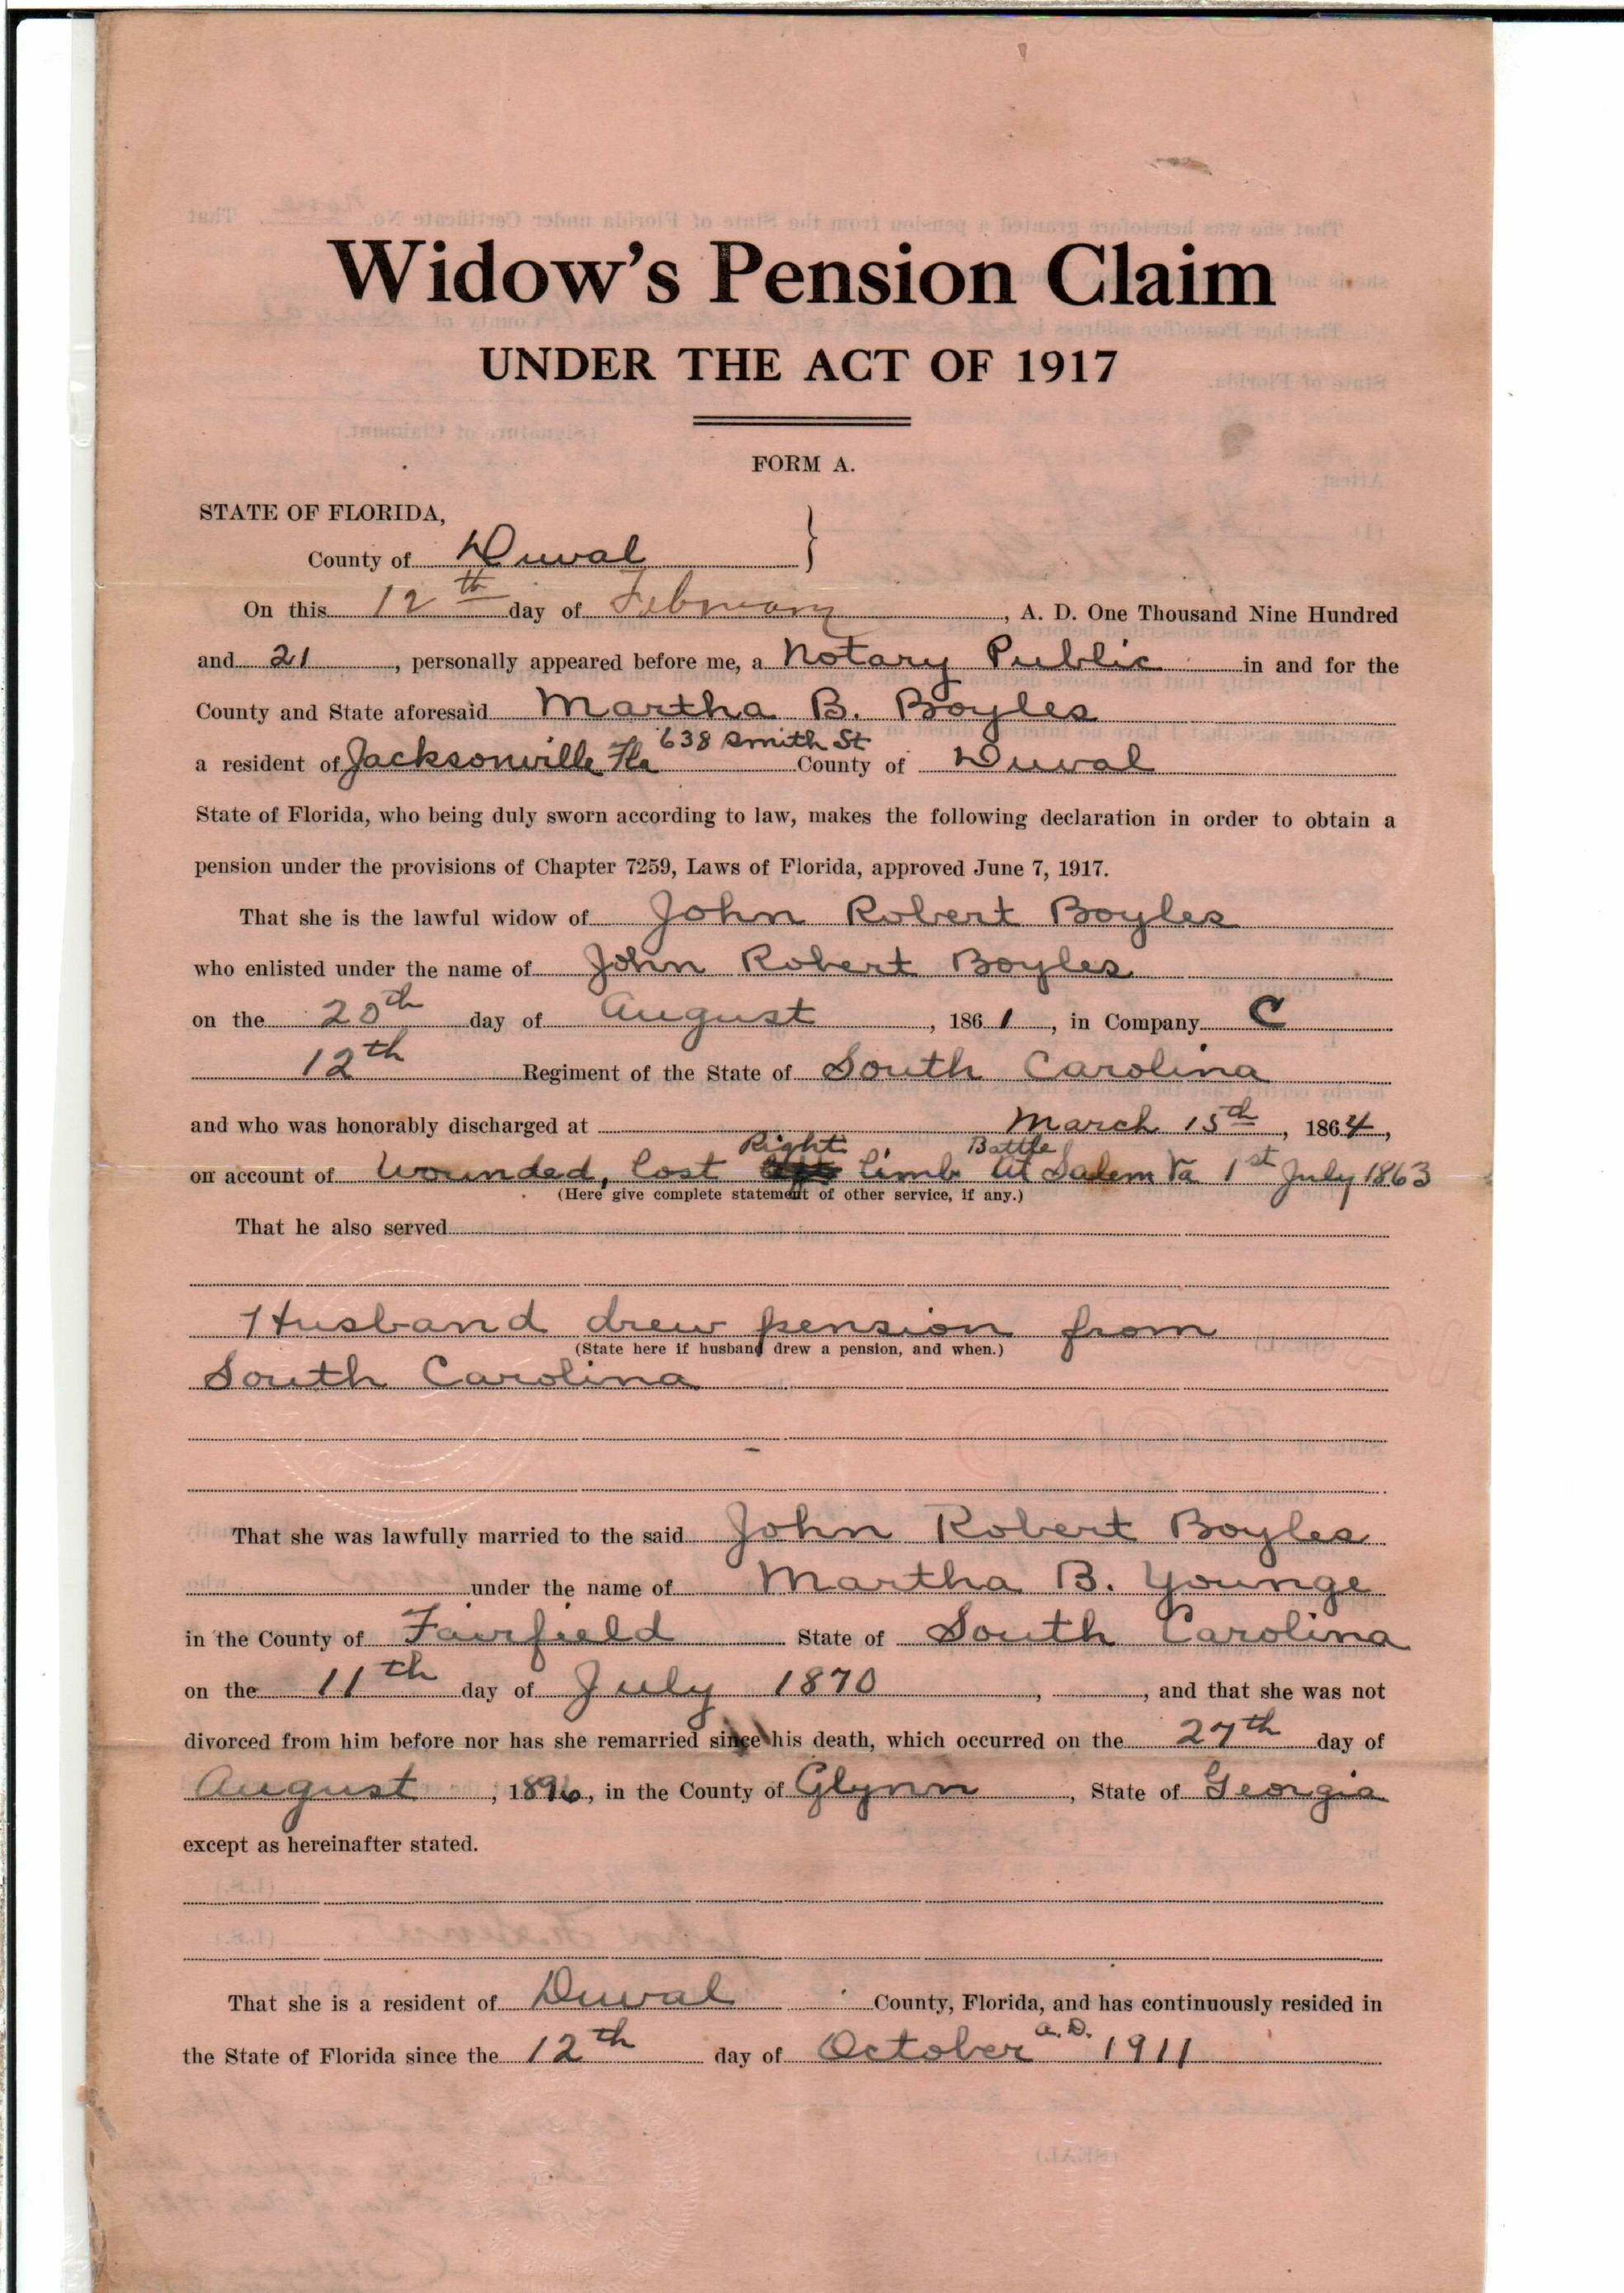 Widow's Pension Claim
UNDER THE ACT OF 1917
FORM A.
STATE OF FLORIDA,
County of Duval }
On this 12th day of February, A. D. One Thousand Nine Hundred
and 21, personally appeared before me, a Notary Public in and for the
County and State aforesaid Martha B. Boyles
638 Smith St
a resident of Jacksonville Fla County of Duval
State of Florida, who being duly sworn according to law, makes the following declaration in order to obtain a
pension under the provisions of Chapter 7259, Laws of Florida, approved June 7, 1917.
That she is the lawful widow of John Robert Boyles
who enlisted under the name of John Robert Boyles
on the 20th day of August, 1861, in Company C
12th Regiment of the State of South Carolina
and who was honorably discharged at March 15th, 1864,
Right Battle
on account of Wounded, lost limb at Salem Va 1st July 1863
(Here give complete statement of other service, if any.)
That he also served
Husband drew pension from
(State here if husband drew a pension, and when.)
South Carolina
That she was lawfully married to the said John Robert Boyles
under the name of Martha B. Younge
in the County of Fairfield State of South Carolina
on the 11th day of July 1870, , and that she was not
divorced from him before nor has she remarried since his death, which occurred on the 27th day of
August, 1896, in the County of Glynn, State of Georgia
except as hereinafter stated.
That she is a resident of Duval County, Florida, and has continuously resided in
a.D.
the State of Florida since the 12th day of October 1911